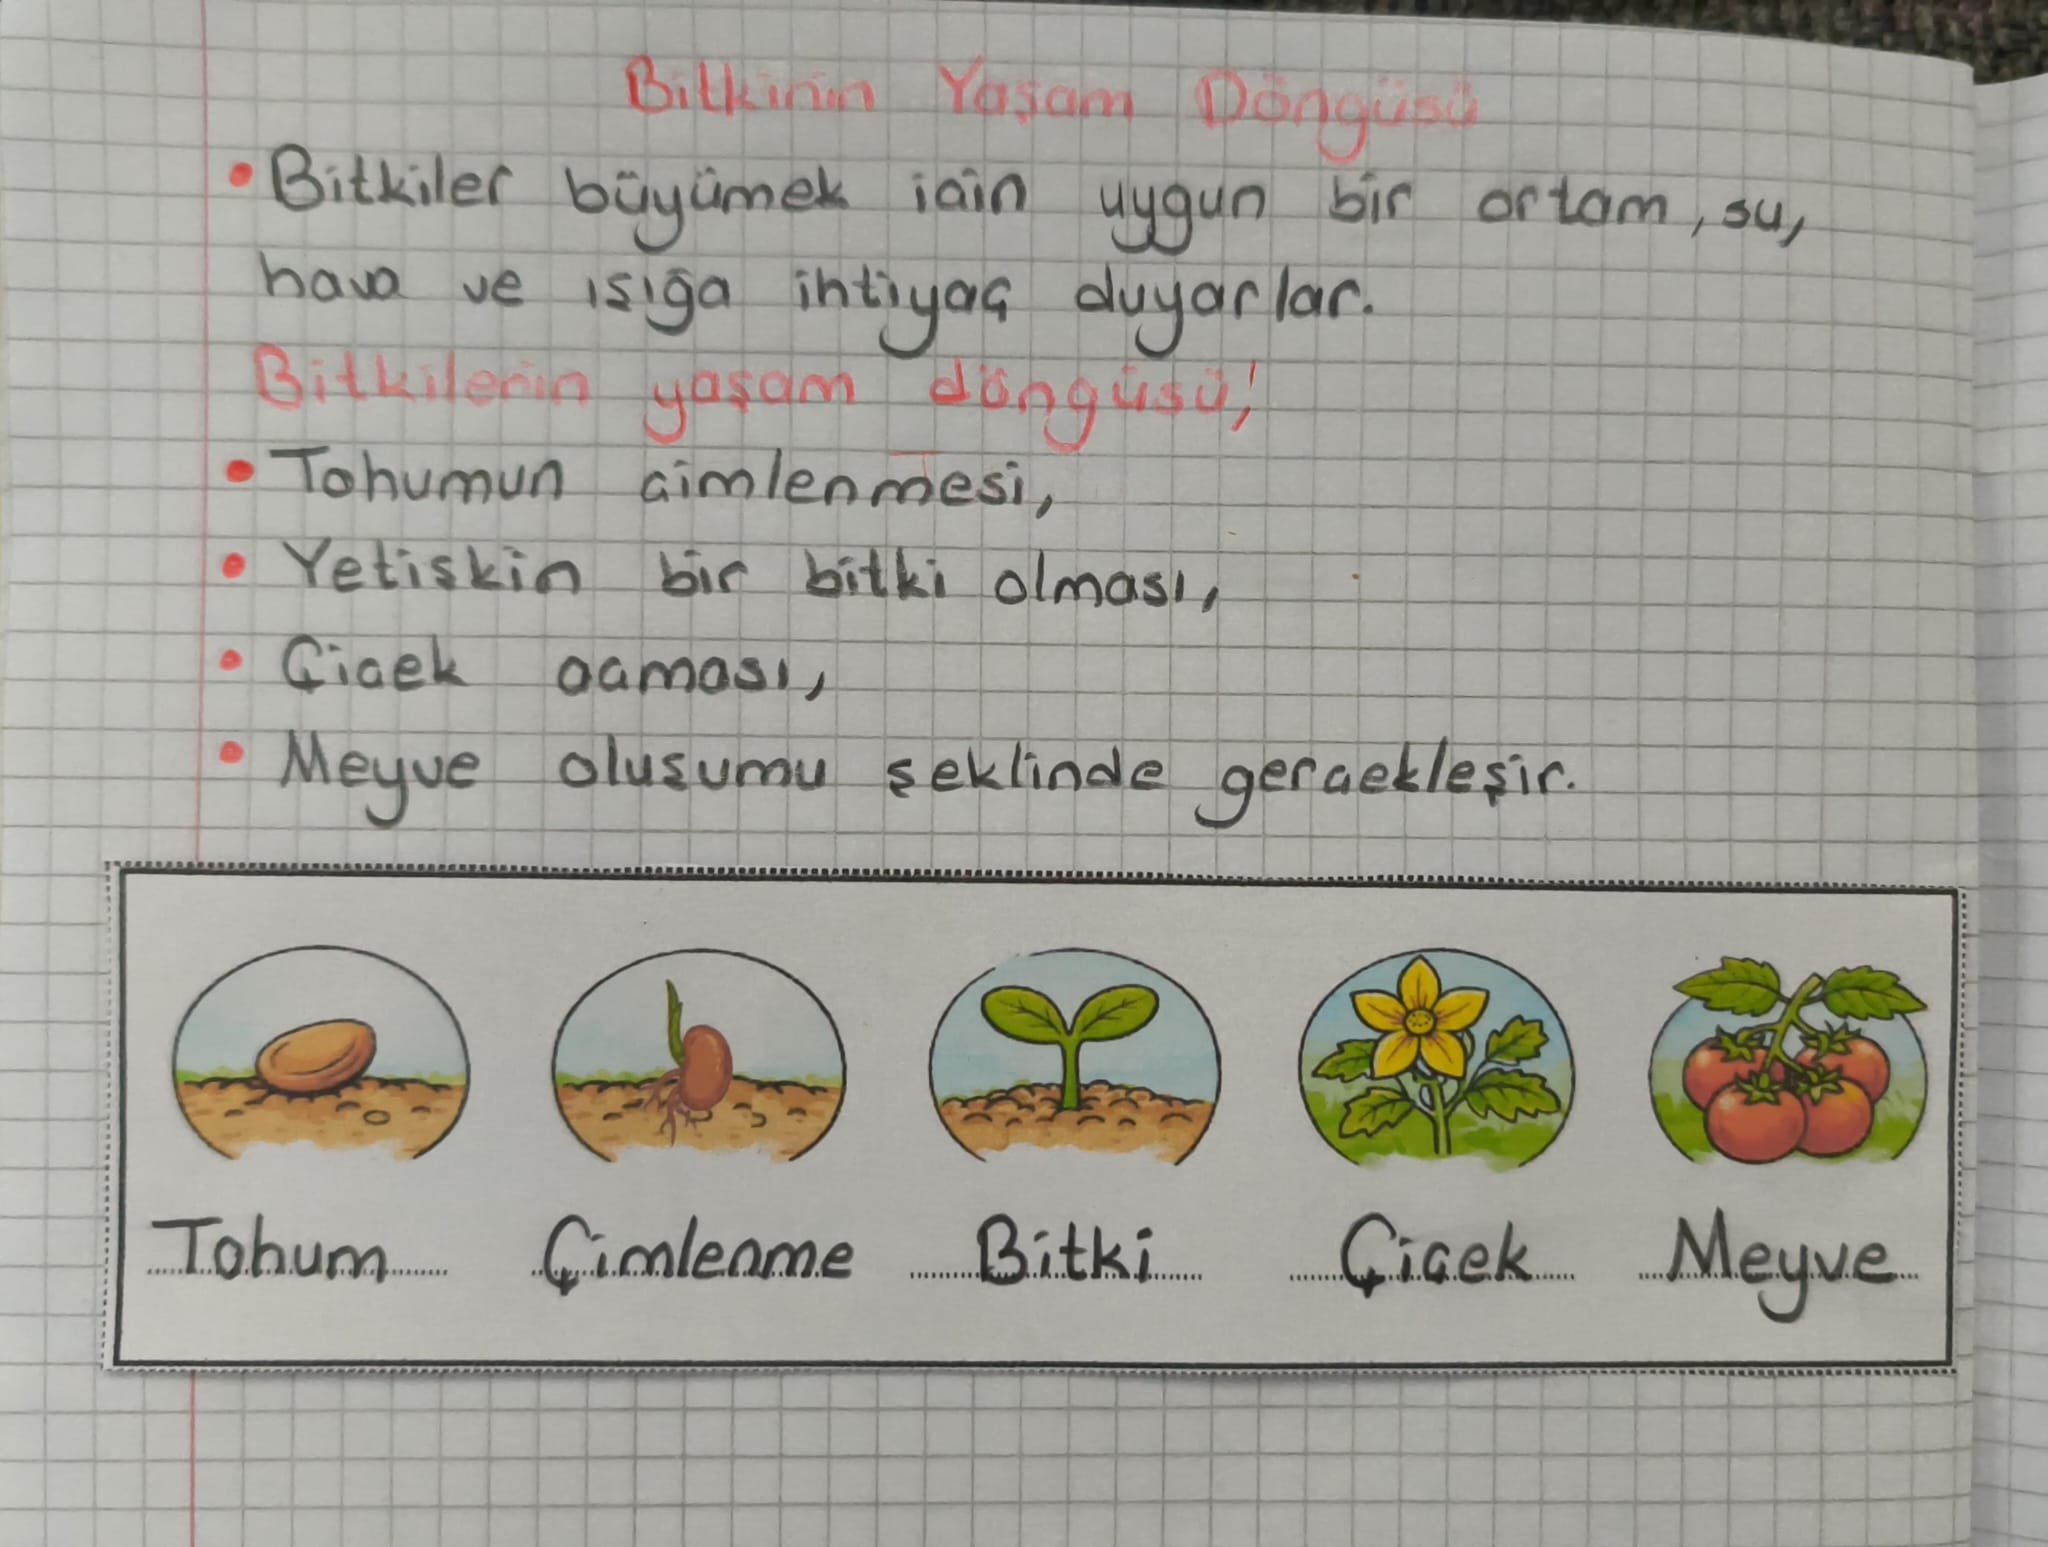 Bitkinin Yaşam Döngüsü
• Bitkiler büyümek için uygun bir ortam, su,
hava ve ışığa ihtiyaç duyarlar.
Bitkilerin yaşam döngüsü;
• Tohumun çimlenmesi,
• Yetişkin bir bitki olması,
• Çiçek açması,
• Meyve oluşumu şeklinde gerçekleşir.
Tohum Çimlenme Bitki Çiçek Meyve